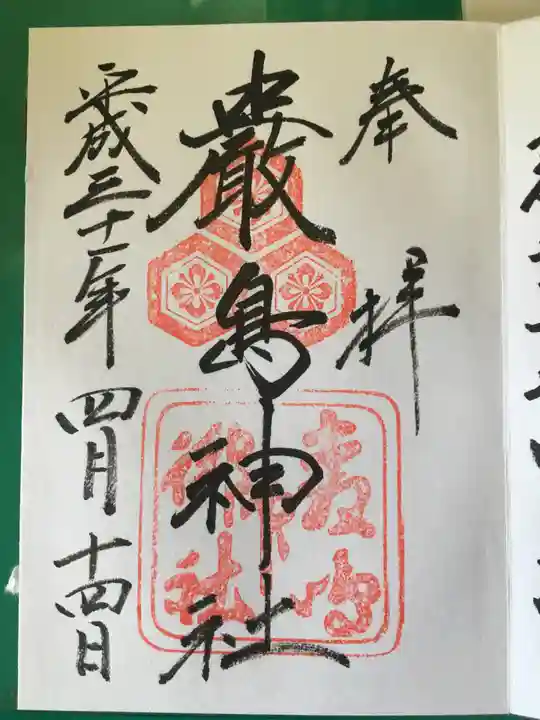 奉拝
嚴島神社
平成三十一年四月十四日